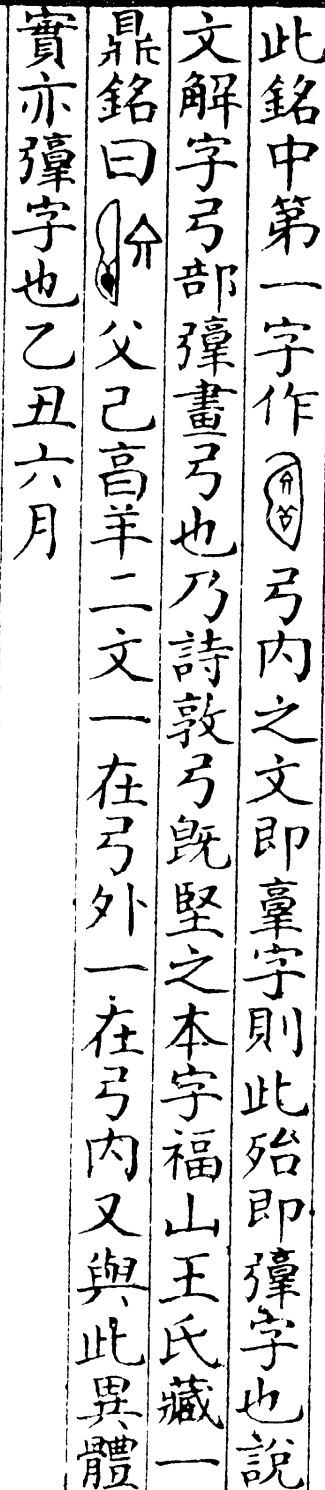 此銘中第一字作弓内之文即𦎧字則此殆即弴字也說
文解字弓部弴畫弓也乃詩敦弓旣堅之本字福山王氏藏一
鼎銘曰父己亯羊二文一在弓外一在弓内又與此異體
實亦弴字也乙丑六月